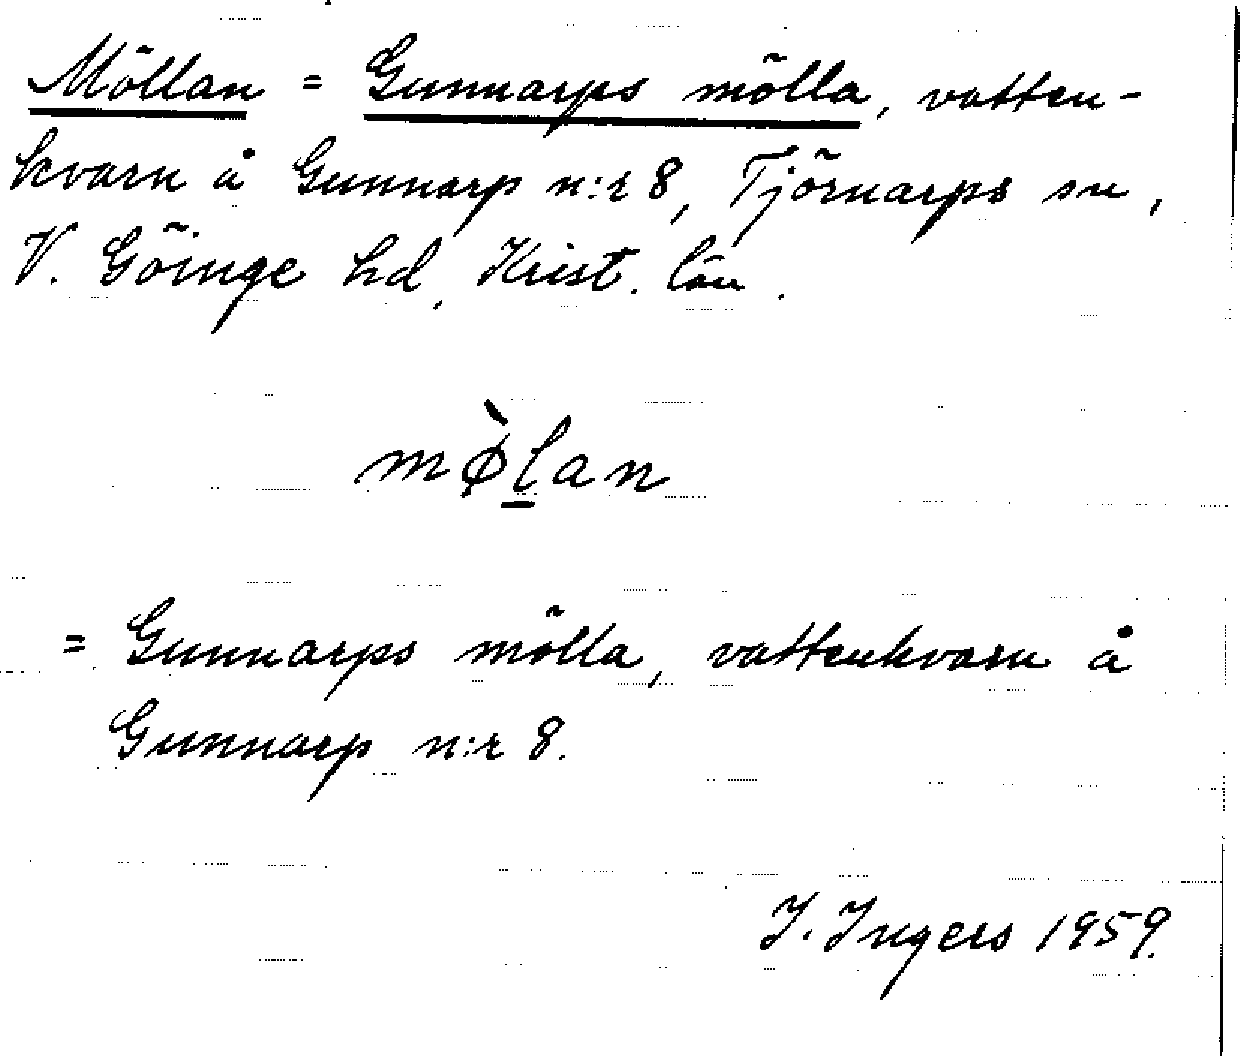 Möllan = Gunnarps mölla, vatten-
kvarn å Gunnarp n:r 8, Tjörnarps sn,
V. Göinge hd, Krist. län.
mø̀l̲an
= Gunnarps mölla, vattenkvarn å
Gunnarp n:r 8.
I. Ingers 1959.